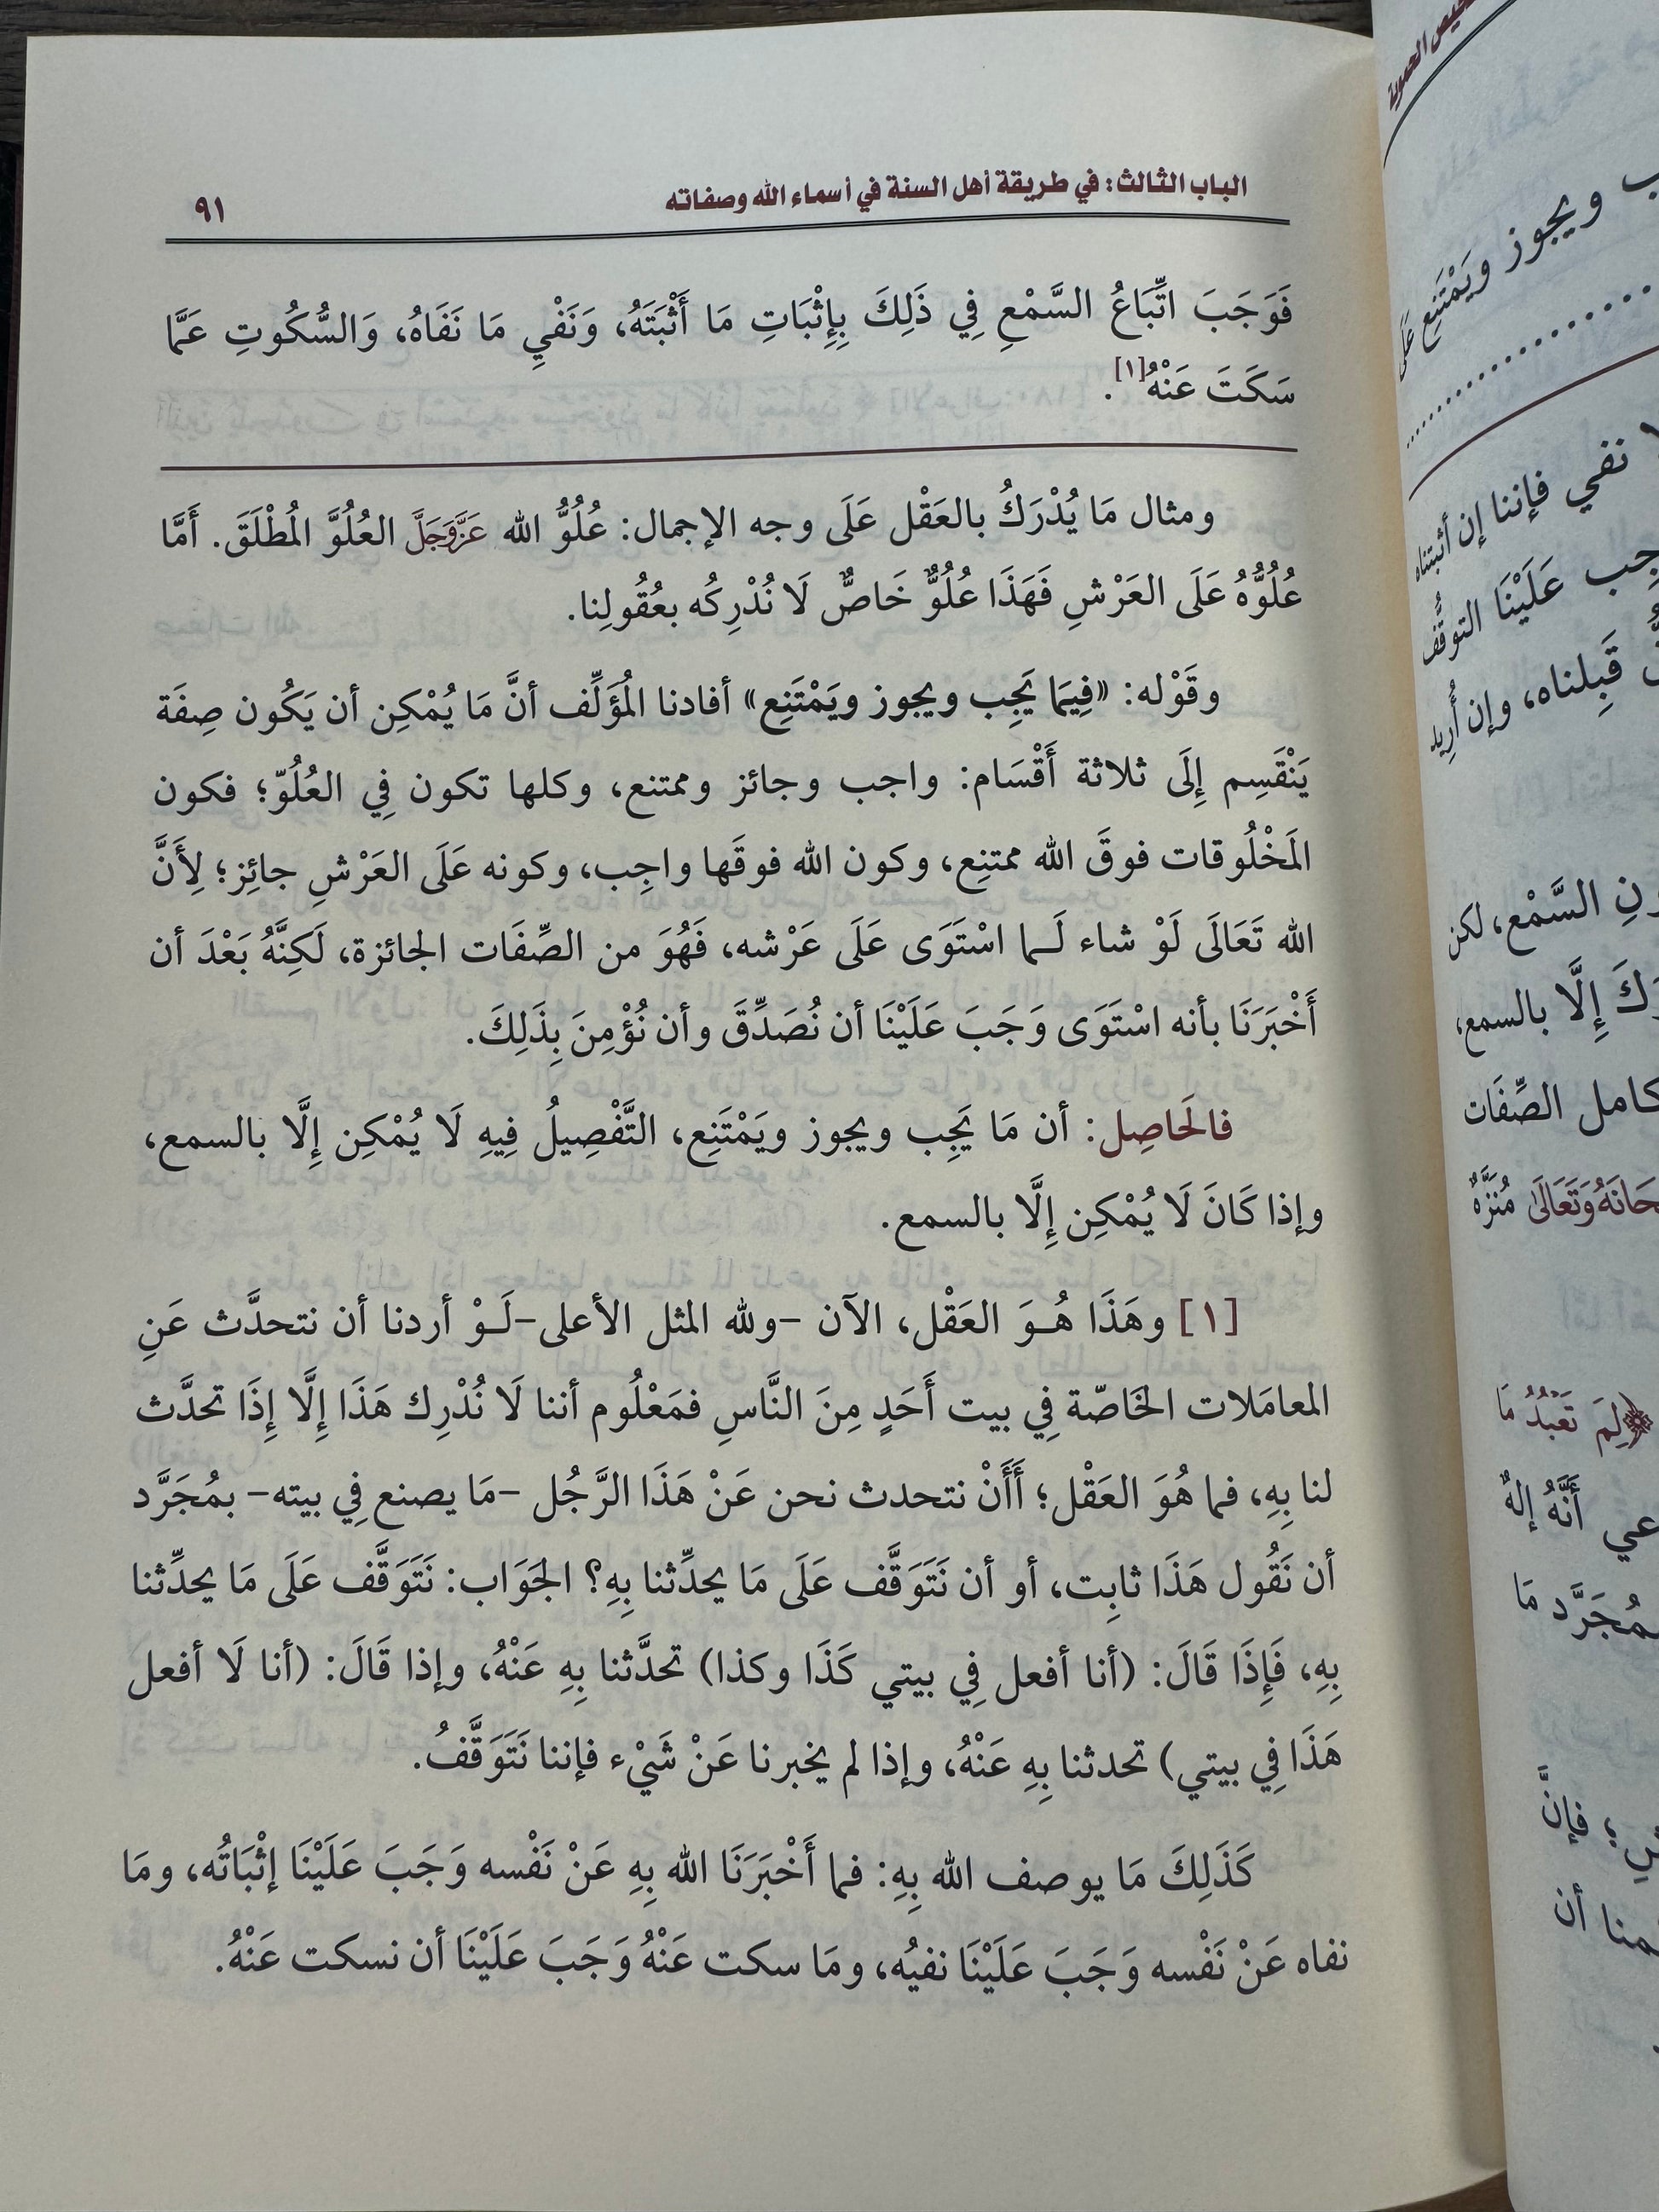 الباب الثالث: في طريقة أهل السنة في أسماء الله وصفاته
٩١
فَوَجَبَ اتِّبَاعُ السَّمْعِ فِي ذَلِكَ بِإِثْبَاتِ مَا أَثْبَتَهُ، وَنَفْيِ مَا نَفَاهُ، وَالسُّكُوتِ عَمَّا
سَكَتَ عَنْهُ[١].
ومثال مَا يُدْرَكُ بالعَقْل عَلَى وجه الإجمال: عُلُوُّ الله عَزَّوَجَلَّ العُلُوَّ المُطْلَقَ. أَمَّا
عُلُوُّهُ عَلَى العَرْشِ فَهَذَا عُلُوٌّ خَاصٌّ لَا نُدْرِكُه بعُقُولِنا.
وقَوْله: «فِيمَا يَجِب ويجوز ويَمْتَنِع» أفادنا المُؤَلِّف أنَّ مَا يُمْكِن أن يَكُون صِفَة
يَنْقَسِم إِلَى ثلاثة أَقْسَام: واجب وجائز وممتنع، وكلها تكون فِي العُلُوّ؛ فكون
المَخْلُوقات فوقَ الله ممتنِع، وكون الله فوقَها واجِب، وكونه عَلَى العَرْشِ جائِز؛ لِأَنَّ
الله تَعَالَى لَوْ شاء لَـما اسْتَوَى عَلَى عَرْشه، فَهُوَ من الصِّفَات الجائزة، لَكِنَّهُ بَعْدَ أن
أَخْبَرَنَا بأنه اسْتَوَى وَجَبَ عَلَيْنَا أن نُصَدِّقَ وأن نُؤْمِنَ بِذَلِكَ.
فالحَاصِل: أن مَا يَجِب ويجوز ويَمْتَنِع، التَّفْصِيلُ فِيهِ لَا يُمْكِن إِلَّا بالسمع،
وإذا كَانَ لَا يُمْكِن إِلَّا بالسمع.
[١] وهَذَا هُـوَ العَقْل، الآن –ولله المثل الأعلى–لَـوْ أردنا أن نتحدَّث عَنِ
المعامَلات الخَاصّة فِي بيت أَحَدٍ مِنَ النَّاسِ فمَعْلُوم أننا لَا نُدْرِك هَذَا إِلَّا إِذَا تحدَّث
لنا بِهِ، فما هُوَ العَقْل؛ أَأَنْ نتحدث نحن عَنْ هَذَا الرَّجُل –مَا يصنع فِي بيته– بمُجَرَّد
أن نَقُول هَذَا ثابِت، أو أن نَتَوَقَّف عَلَى مَا يحدِّثنا بِهِ؟ الجَوَاب: نَتَوَقَّف عَلَى مَا يحدِّثنا
بِهِ، فَإِذَا قَالَ: (أنا أفعل فِي بيتي كَذَا وكذا) تحدَّثنا بِهِ عَنْهُ، وإذا قَالَ: (أنا لَا أفعل
هَذَا فِي بيتي) تحدثنا بِهِ عَنْهُ، وإذا لم يخبرنا عَنْ شَيْء فإننا نَتَوَقَّفُ.
كَذَلِكَ مَا يوصف الله بِهِ: فما أَخْبَرَنَا الله بِهِ عَنْ نَفْسه وَجَبَ عَلَيْنَا إثْبَاتُه، ومَا
نفاه عَنْ نَفْسه وَجَبَ عَلَيْنَا نفيُه، ومَا سكت عَنْهُ وَجَبَ عَلَيْنَا أن نسكت عَنْهُ.
ويجوز ويَمْتَنِع عَلَى
نفي فإننا إن أثبتناه
عَلَيْنَا التوقُّف
قَبِلناه، وإن أُرِيد
السَّمْع، لكن
إِلَّا بالسمع،
كامل الصِّفَات
مُنَزَّهٌ
﴿لِمَ تَعْبُدُ مَا
أَنَّهُ إلهٌ
بمُجَرَّد مَا
؛ فإنَّ
أن